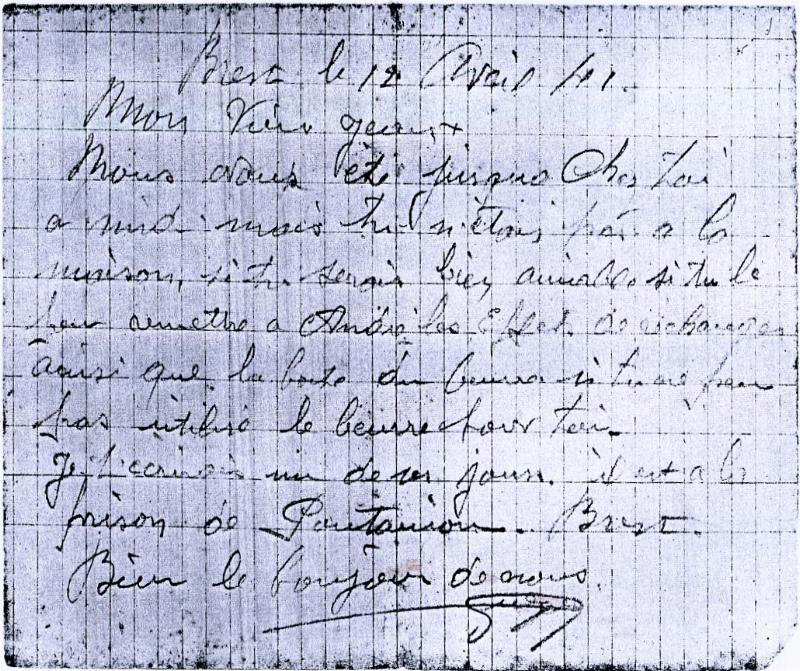 Brest le 12 Avril 41.
Mon Vieux
Nous avons été jusqua Chez toi
a midi mais tu n'étais pas a la
maison, si tu serais bien aimable si tu le
peu remettre a André les Effets de rechanges
ainsi que la boite du beurre si tu ne peu
pas utilisé le beurre pour toi.
Je t'écrirais un de ses jours. il est a la
prison de Pontaniou. Brest.
Bien le bonjour de nous.